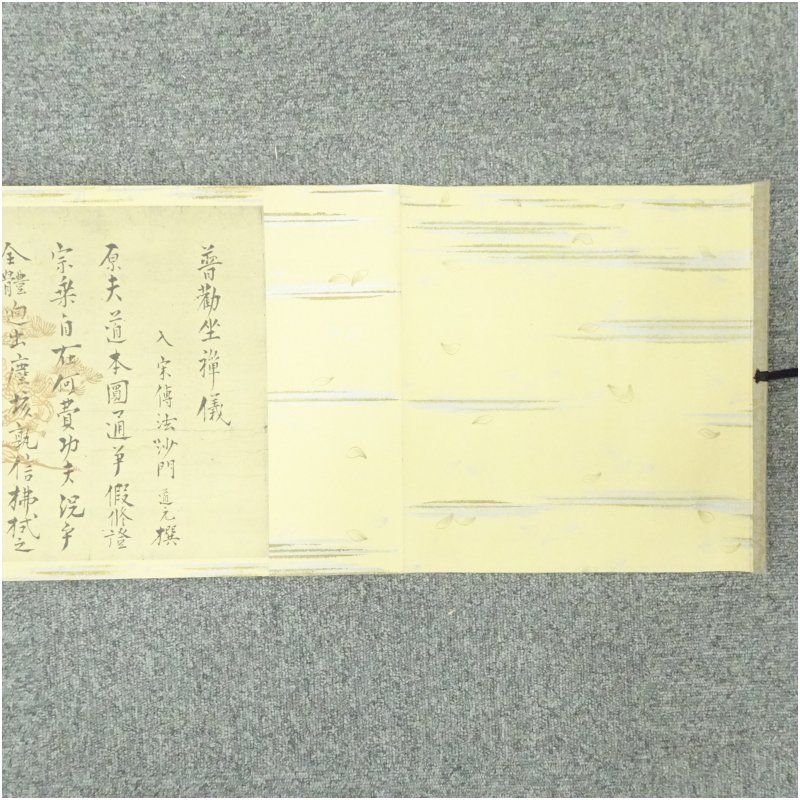 普勸坐禪儀
入宋傳法沙門 道元 撰
原夫道本圓通爭假修證
宗乗自在何費功夫況乎
全體迥出塵埃孰信拂拭之